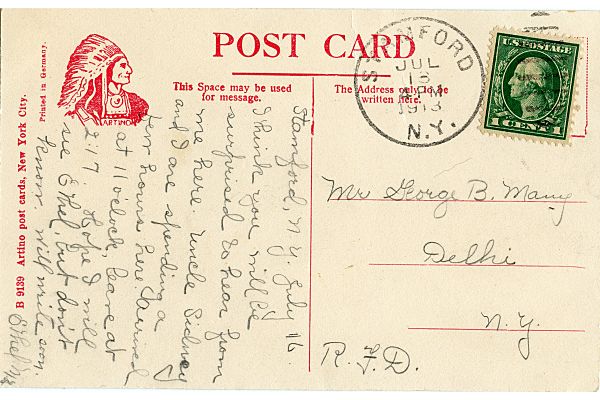 POST CARD
This Space may be used
for message.
The Address only to be
written here.
ARTINO
Printed in Germany.
B 9139 Artino post cards, New York City.
STAMFORD
JUL
1913
N.Y.
U.S. POSTAGE
1 CENT 1
Stamford, N.Y. July 16
I think you will be
surprised to hear from
me here. Uncle Sidney
and I are spending a
few hours here. Arrived
at 11 o'clock, leave at
2:17. Hope I will
see Ethel, but don't
know. Will write soon.
Mr George B. Many
Delhi
N.Y.
R.F.D.